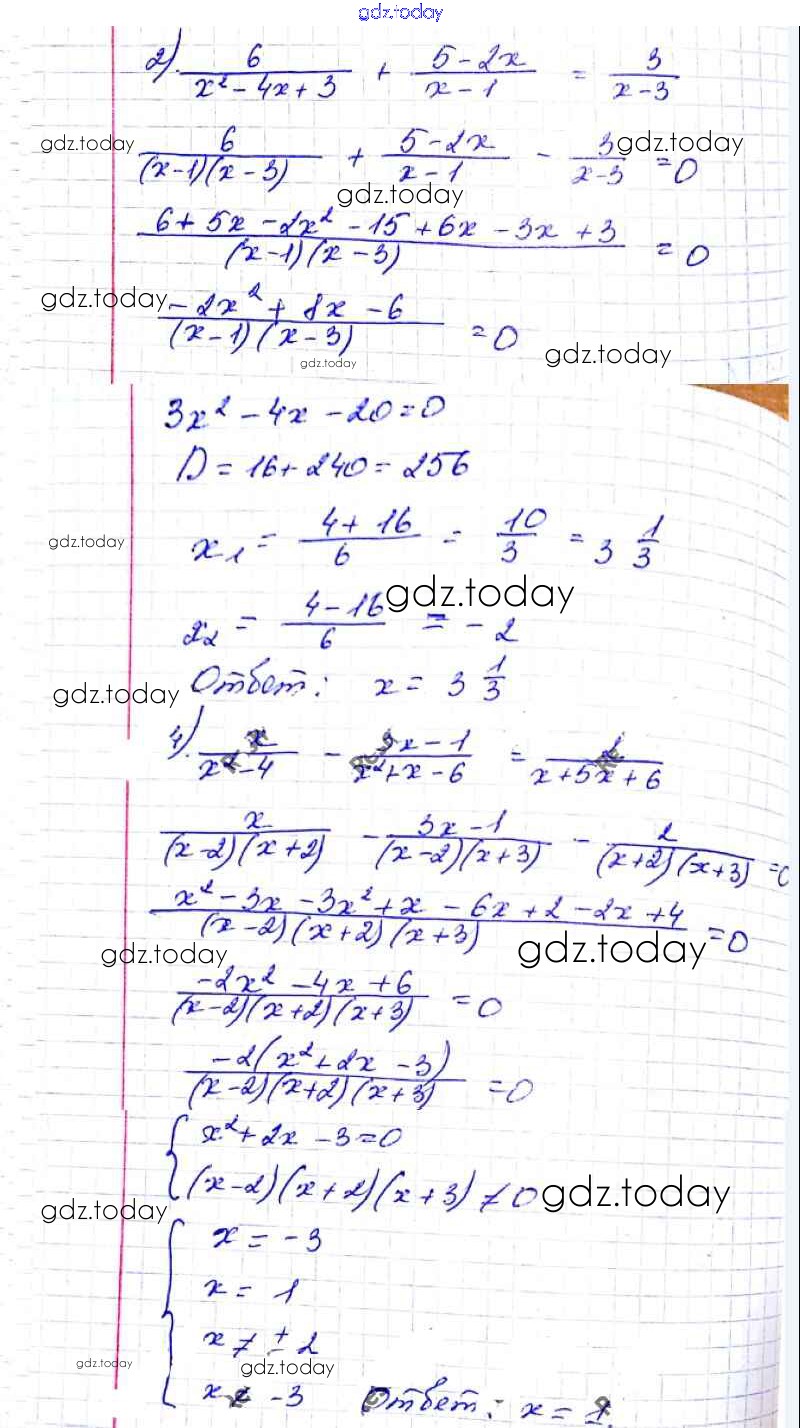 gdz.today
2). 6/(x² - 4x + 3) + (5 - 2x)/(x - 1) = 3/(x - 3)
gdz.today 6/((x-1)(x-3)) + (5 - 2x)/(x - 1) - 3/(x-3) = 0 gdz.today
gdz.today
(6 + 5x - 2x² - 15 + 6x - 3x + 3)/((x-1)(x-3)) = 0
gdz.today (-2x² + 8x - 6)/((x-1)(x-3)) = 0 gdz.today
gdz.today
3x² - 4x - 20 = 0
D = 16 + 240 = 256
gdz.today x₁ = (4 + 16)/6 = 10/3 = 3 1/3
x₂ = (4 - 16)/6 = -2 gdz.today
gdz.today Ответ: x = 3 1/3
4). x/(x² - 4) - (3x - 1)/(x² + x - 6) = 2/(x + 5x + 6)
x/((x-2)(x+2)) - (3x - 1)/((x-2)(x+3)) - 2/((x+2)(x+3)) = 0
(x² - 3x - 3x² + x - 6x + 2 - 2x + 4)/((x-2)(x+2)(x+3)) = 0
gdz.today gdz.today
(-2x² - 4x + 6)/((x-2)(x+2)(x+3)) = 0
(-2(x² + 2x - 3))/((x-2)(x+2)(x+3)) = 0
{ x² + 2x - 3 = 0
(x-2)(x+2)(x+3) ≠ 0 gdz.today
gdz.today
{ x = -3
x = 1
x ≠ ± 2
gdz.today gdz.today
x ≠ -3 Ответ: x = 1.